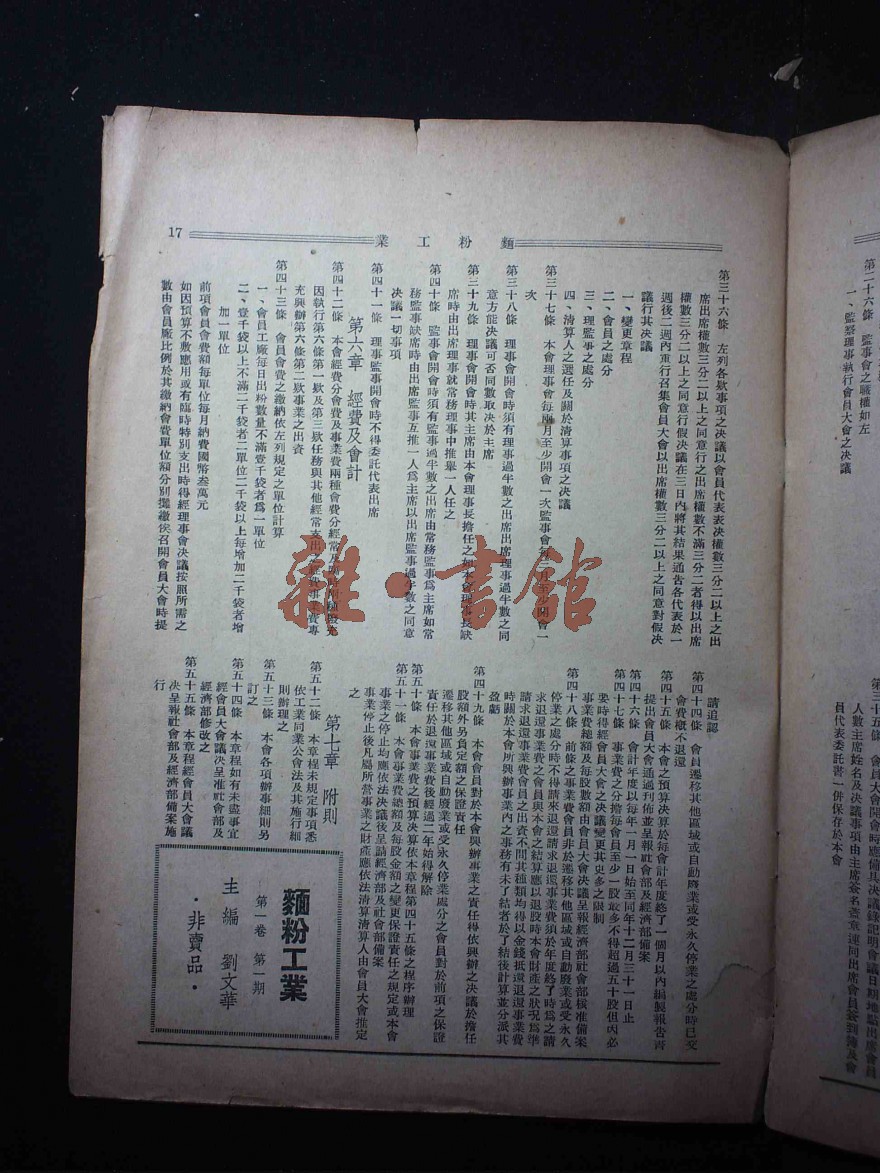 17
麵粉工業
第三十六條 左列各欵事項之決議以會員代表表決權數三分二以上之出
席出席權數三分二以上之同意行之出席權數不滿三分二者得以出席
權數三分二以上之同意行假決議在三日內將其結果通告各代表於一
週後二週內重行召集會員大會以出席權數三分二以上之同意對假決
議行其決議
一、變更章程
二、會員之處分
三、理監事之處分
四、清算人之選任及關於清算事項之決議
第三十七條 本會理事會每兩月至少開會一次監事會每二月至少開會一
次
第三十八條 理事會開會時須有理事過半數之出席出席理事過半數之同
意方能決議可否同數取決於主席
第三十九條 理事會開會時其主席由本會理事長擔任之如本會理事長缺
席時由出席理事就常務理事中推舉一人任之
第四十條 監事會開會時須有監事過半數之出席由常務監事為主席如常
務監事缺席時由出席監事互推一人為主席以出席監事過半數之同意
決議一切事項
第四十一條 理事監事開會時不得委託代表出席
第六章 經費及會計
第四十二條 本會經費分會費及事業費兩種會費分經常及
因執行第六條第一欵及第三欵任務與其他經常支出之經費事業費專
充興辦第六條第二欵事業之出資
第四十三條 會員會費之繳納依左列規定之單位計算
一、會員工廠每日出粉數量不滿壹千袋者為一單位
二、壹千袋以上不滿二千袋者二單位二千袋以上每增加二千袋者增
加一單位
前項會員會費額每單位每月納費國幣叁萬元
如因預算不敷應用或有臨時特別支出時得經理事會決議按照所需之
數由會員廠比例於其繳納會費單位額分別攤繳俟召開會員大會時提
請追認
第四十四條 會員遷移其他區域或自動廢業或受永久停業之處分時已交
會費概不退還
第四十五條 本會之預算決算於每會計年度終了一個月以內編製報告書
提出會員大會通過刊佈並呈報社會部及經濟部備案
第四十六條 會計年度以每年一月一日始至同年十二月三十一日止
第四十七條 事業費之分擔每會員至少一股最多不得超過五十股但因必
要時得經會員大會之決議變更其最多之限制
事業費總額及每股數額由會員大會決議呈報經濟部社會部核准備案
第四十八條 前條之事業費會員非於遷移其他區域或自動廢業或受永久
停業之處分時不得請求退還請求退還事業費須於年度終了時為之請
求退還事業費之會員與本會之結算應以退股時本會財產之狀況為準
請求退還事業費會員之出資不問其種類均得以金錢抵還退還事業費
時關於本會所興辦事業內之事務有未了結者於了結後計算並分派其
盈虧
第四十九條 本會會員對於本會興辦事業之責任得依興辦之決議於擔任
股額外另負定額之保證責任
遷移其他區域或自動廢業或受永久停業處分之會員對於前項之保證
責任於退還事業費後經過二年始得解除
第五十條 本會事業費之預算決算依本章程第四十五條之程序辦理
第五十一條 本會事業費總額及每股金額之變更保證責任之規定或本會
事業之停止均應依法決議後呈請經濟部及社會部備案
事業停止後凡屬所營事業之財產應依法清算清算人由會員大會推定
之
第七章 附則
第五十二條 本章程未規定事項悉
依工業同業公會法及其施行細
則辦理之
第五十三條 本會各項辦事細則另
訂之
第五十四條 本章程如有未盡事宜
經會員大會議決呈准社會部及
經濟部修改之
第五十五條 本章程經會員大會議
決呈報社會部及經濟部備案施
行
麵粉工業
第一卷 第一期
主編 劉文華
·非賣品·
第二十六條 監事會之職權如左
一、監察理事執行會員大會之決議
第三十五條 會員大會開會時應備具決議錄記明會議日期地點出席會員
人數主席姓名及決議事項由主席簽名蓋章連同出席會員簽到簿及會
員代表委託書一併保存於本會
雜·書館